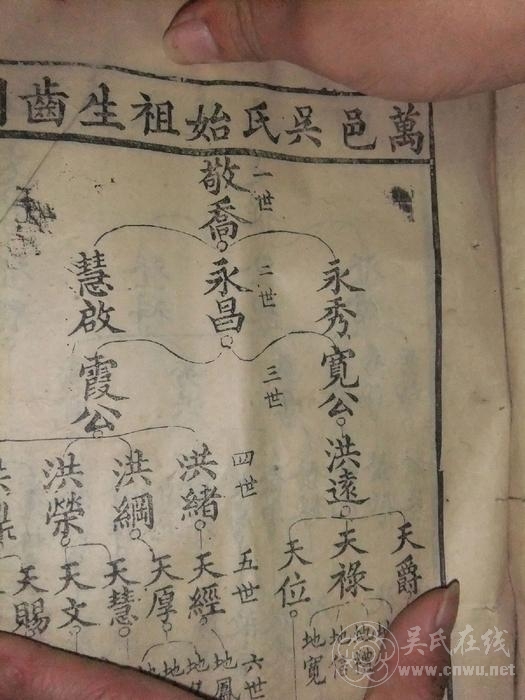 萬邑吳氏始祖生齒
一世
敬喬
二世
永秀
永昌
慧啟
三世
寬公
霞公
四世
洪遠
洪緒
洪綱
洪榮
五世
天爵
天祿
天位
天經
天厚
天慧
天文
天賜
六世
地禮
地信
地寬
地鳳
吴氏在线
www.cnwu.net